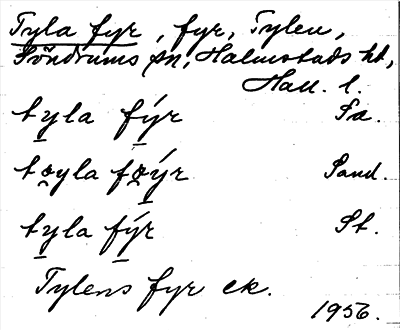 Tyla fyr, fyr, Tylen,
Söndrums sn, Halmstads hd,
Hall. l.
tyla fýr Sa.
toyla foýr Sand.
tyla fýr St.
Tylens fyr ek.
1956.